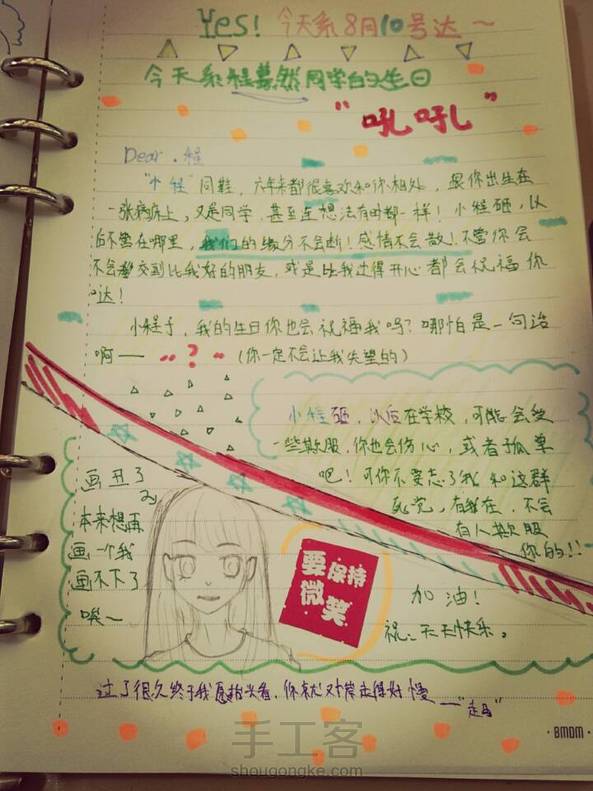 Yes! 今天系8月10号达~
今天系程慕然同学的生日
"吼吼"
Dear.程
"小程"同鞋,六年来都很喜欢和你相处,跟你出生在
一张病床上,又是同学,甚至连想法有时都一样!小程砸,以
后不管在哪里,我们的缘分不会断!感情不会散!不管你会
不会交到比我好的朋友,或是比我过得开心都会祝福你
哒!
小程子,我的生日你也会祝福我吗?哪怕是一句话
啊——"?"(你一定不会让我失望的)
小程砸,以后在学校,可能会受
一些欺服,你也会伤心,或者孤单
吧!可你不要忘了我和这群
死党,有我在,不会
有人欺服
你的!!
画丑了
本来想再
画一个我
画不下了
唉~
要保持
微笑
加油!
祝:天天快乐。
过了很久终于我愿抬头看,你就对岸走得好慢—
"走马"
BMDM
手工客
shougongke.com